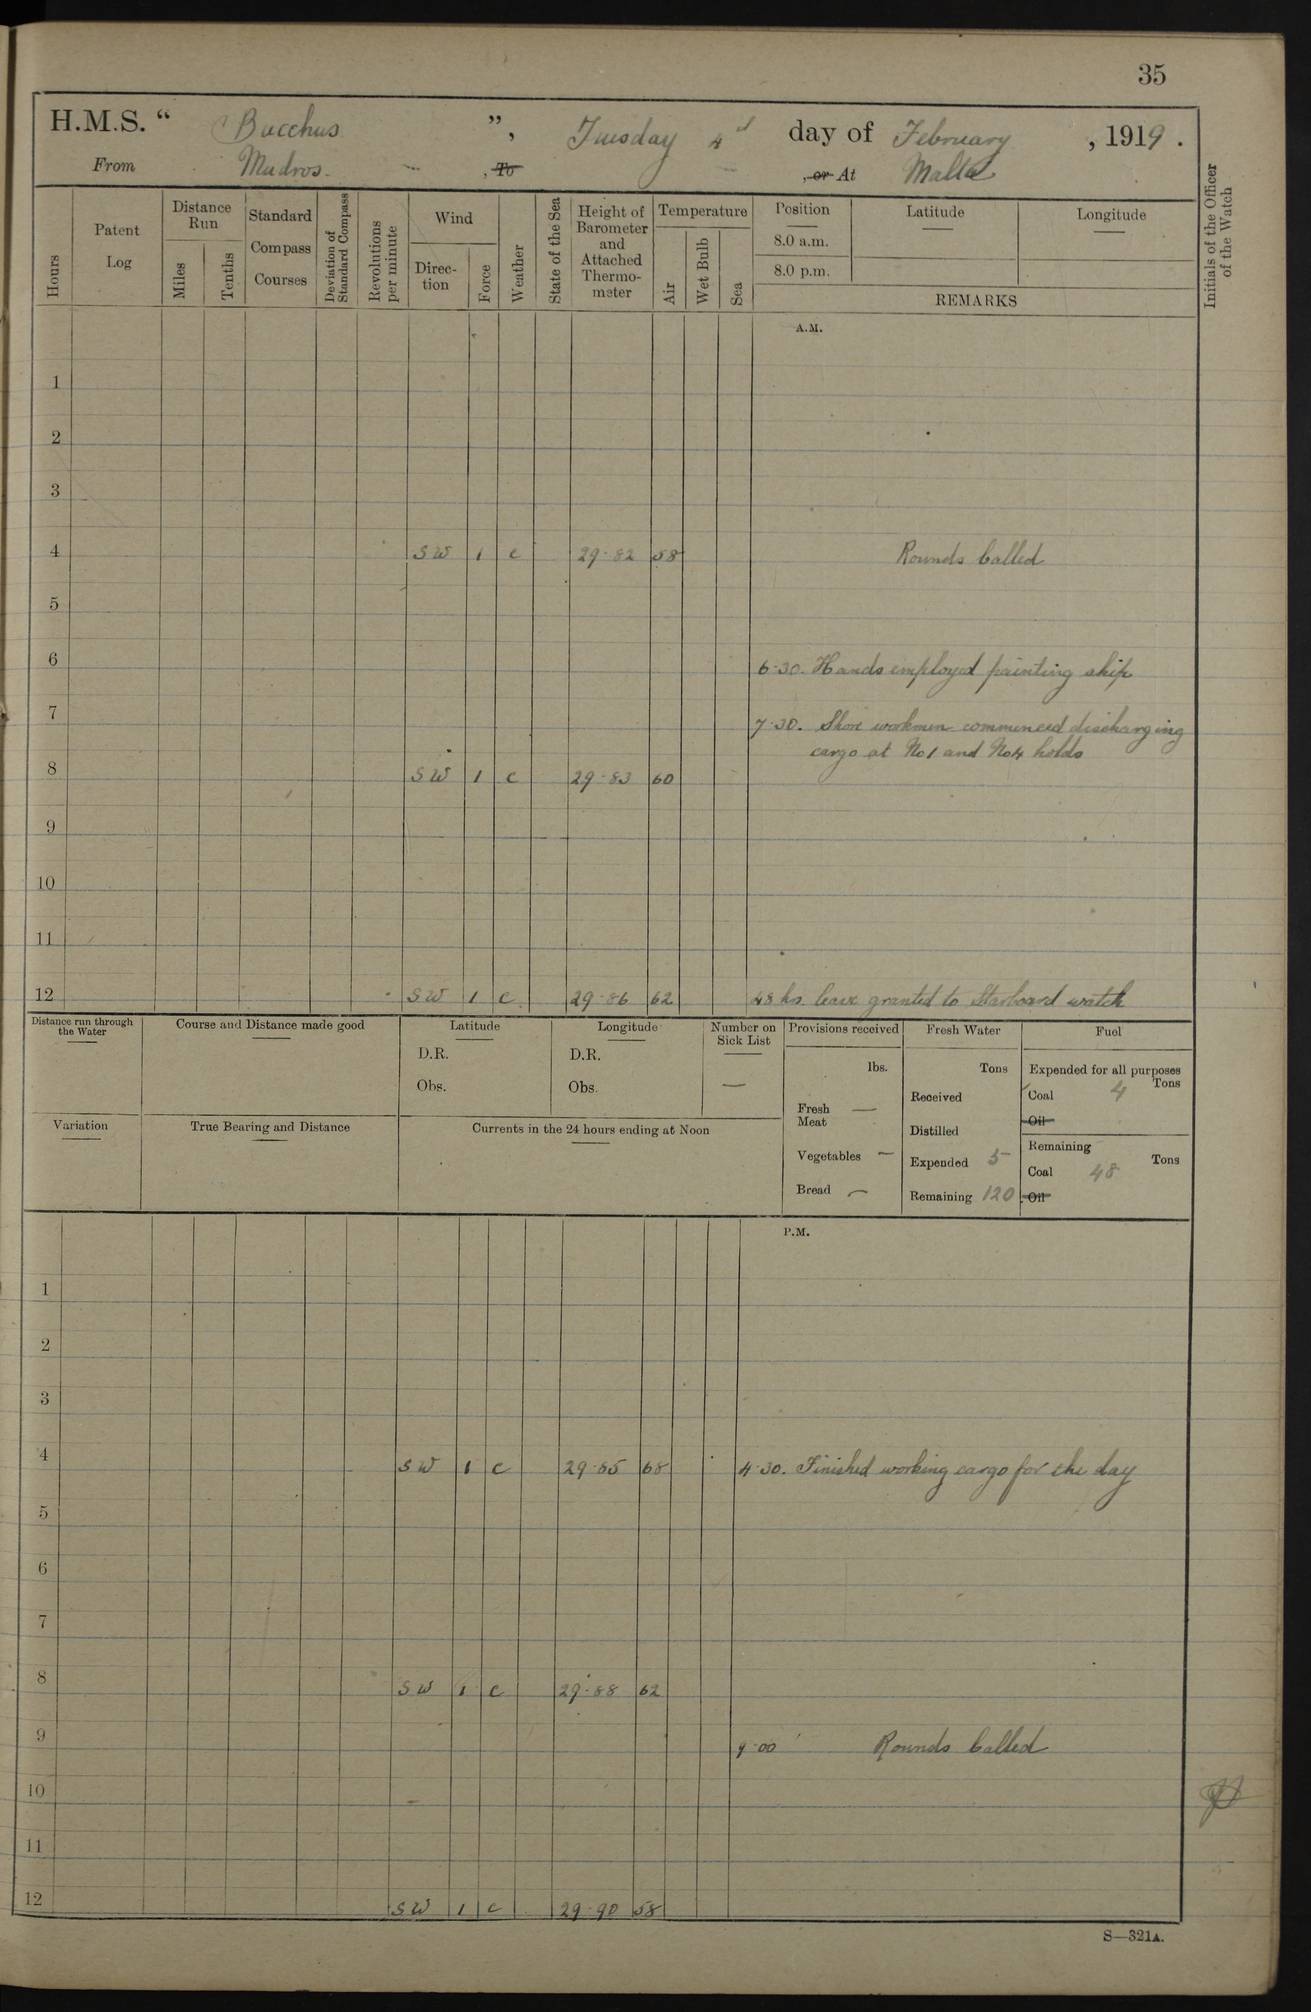 35
H.M.S. “ Bacchus ”, Tuesday 4th day of February , 1919.
From Mudros. , To , or At Malta
Hours
Patent Log
Distance Run
Miles
Tenths
Standard Compass Courses
Deviation of Standard Compass
Revolutions per minute
Wind
Direction
Force
Weather
State of the Sea
Height of Barometer and Attached Thermometer
Temperature
Air
Wet Bulb
Sea
Position
8.0 a.m.
8.0 p.m.
Latitude
Longitude
REMARKS
Initials of the Officer of the Watch
A.M.
1
2
3
4 SW 1 c 29·82 58 Rounds Called
5
6
6·30. Hands employed painting ship
7
7·30. Shore workmen commenced discharging
cargo at No1 and No4 holds
8 SW 1 c 29·83 60
9
10
11
12 SW 1 c 29·86 62 48 hrs. leave granted to Starboard watch
Distance run through the Water
Course and Distance made good
Latitude
D.R.
Obs.
Longitude
D.R.
Obs.
Number on Sick List
—
Variation
True Bearing and Distance
Currents in the 24 hours ending at Noon
Provisions received
lbs.
Fresh Meat —
Vegetables —
Bread —
Fresh Water
Tons
Received
Distilled
Expended 5
Remaining 120
Fuel
Expended for all purposes
Tons
Coal 4
Oil
Remaining
Tons
Coal 48
Oil
P.M.
1
2
3
4 SW 1 c 29·85 68 4·30. Finished working cargo for the day
5
6
7
8 SW 1 c 29·88 62
9 9·00 Rounds Called
10
11
12 SW 1 c 29·90 58
S—321A.